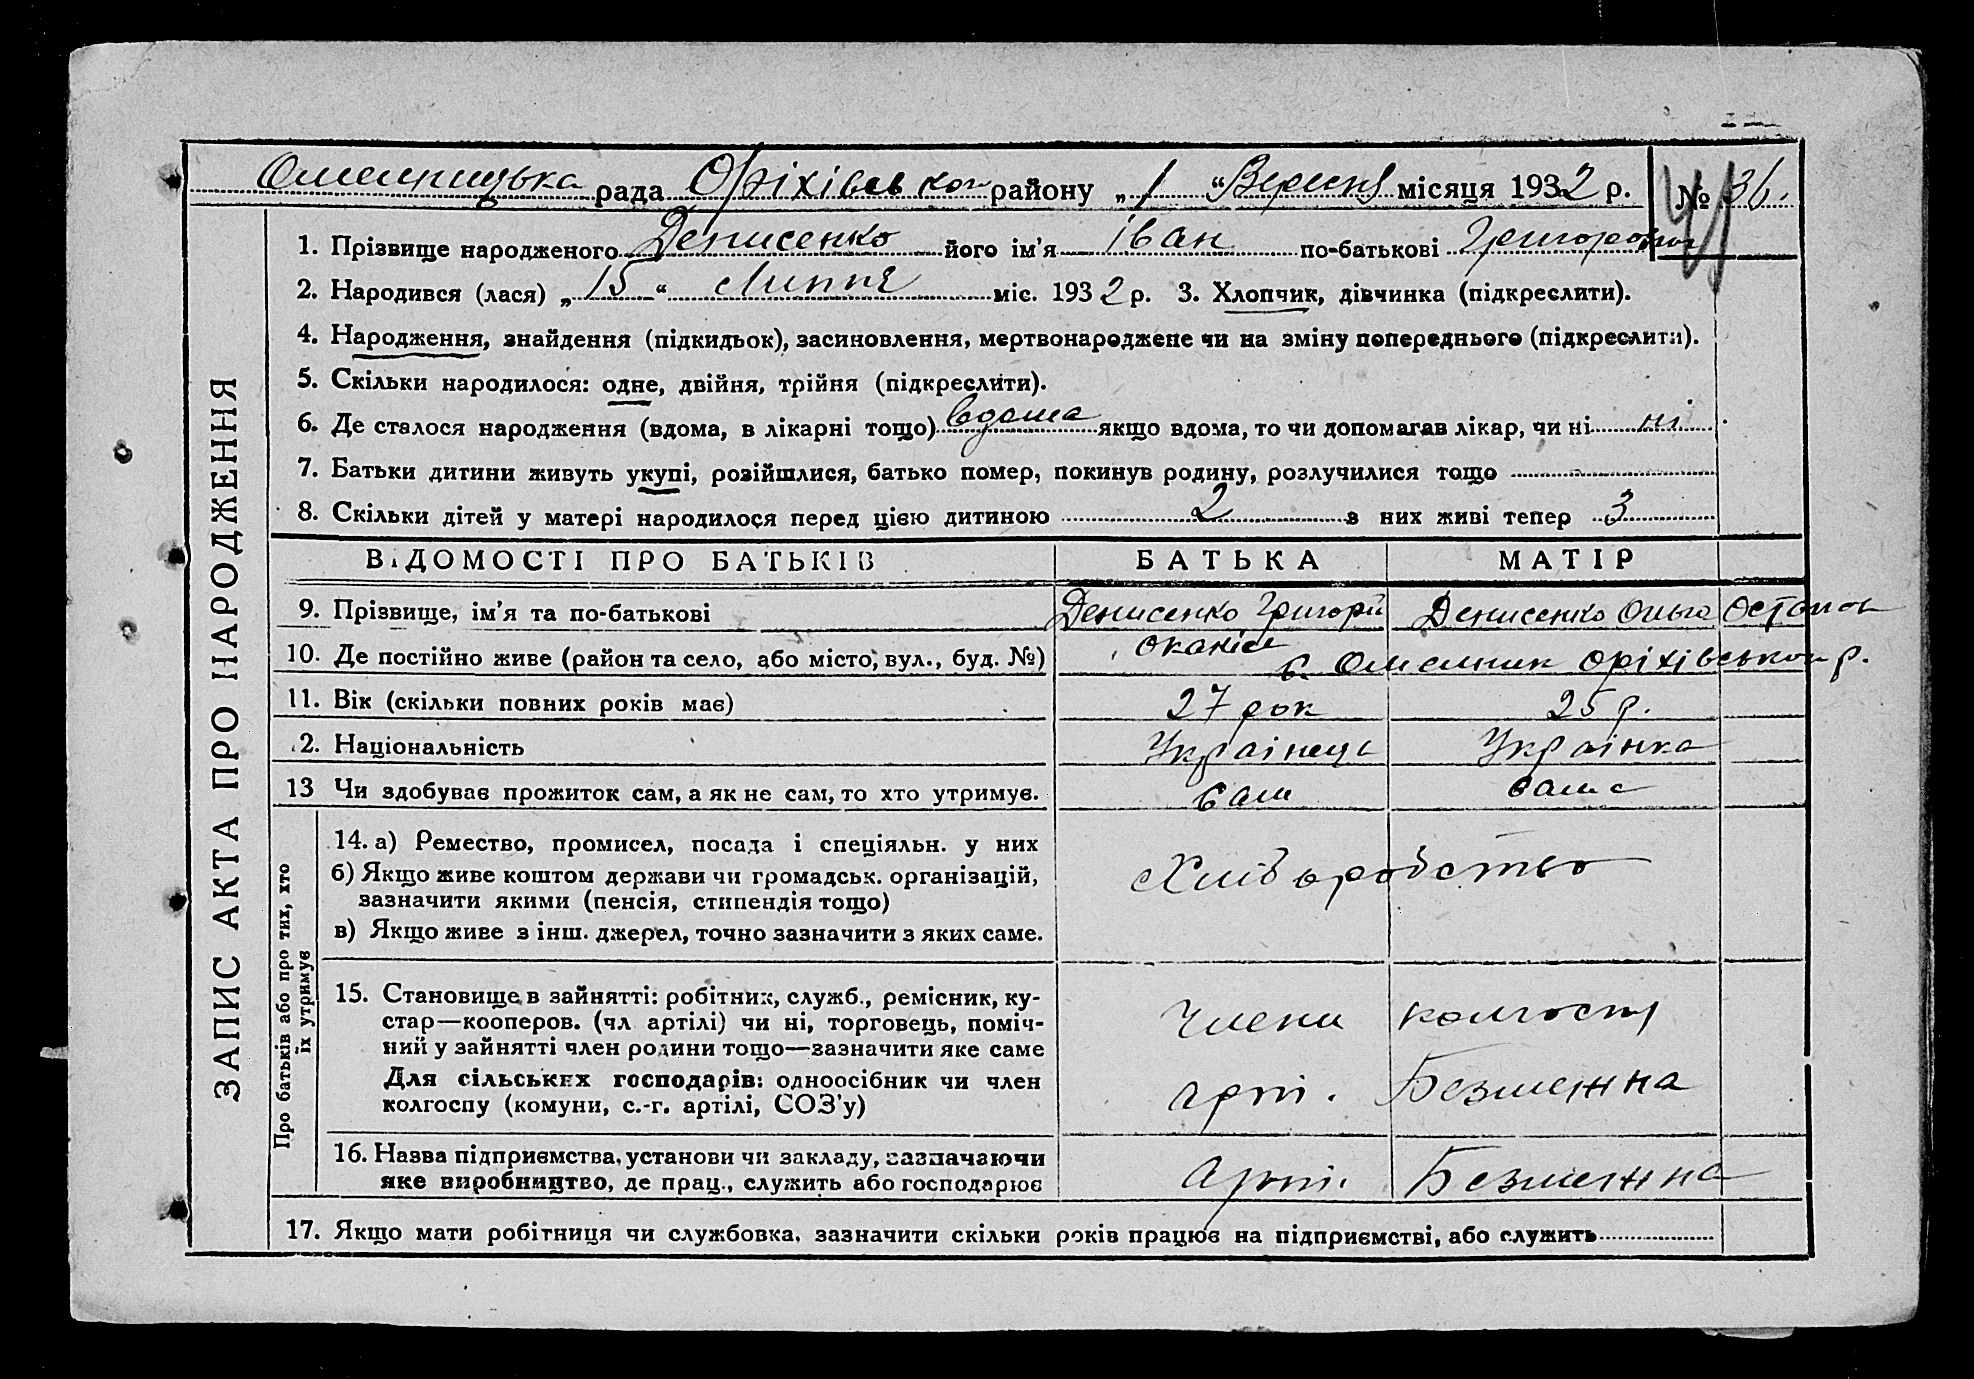 Омелницька рада Оріхівської району „1“ Вересня місяця 1932 р. № 36.
1. Прізвище народженого Денисенко його ім'я Іван по-батькові Григорович
2. Народився (лася) „15“ Липня міс. 1932 р. 3. Хлопчик, дівчинка (підкреслити).
4. Народження, знайдення (підкидьок), засиновлення, мертвонароджене чи на зміну попереднього (підкреслити).
5. Скільки народилося: одне, двійня, трійня (підкреслити).
6. Де сталося народження (вдома, в лікарні тощо) вдома якщо вдома, то чи допомагав лікар, чи ні ні
7. Батьки дитини живуть укупі, розійшлися, батько помер, покинув родину, розлучилися тощо
8. Скільки дітей у матері народилося перед цією дитиною 2 з них живі тепер 3
ЗАПИС АКТА ПРО НАРОДЖЕННЯ
ВІДОМОСТІ ПРО БАТЬКІВ БАТЬКА МАТІР
9. Прізвище, ім'я та по-батькові Денисенко Григорій Денисенко Ольга Остапов
10. Де постійно живе (район та село, або місто, вул., буд. №) с. Омелник Оріхівського р.
11. Вік (скільки повних років має) 27 рок 25 р.
12. Національність Українець Українка
13 Чи здобуває прожиток сам, а як не сам, то хто утримує. сам сама
Про батьків або про тих, хто
їх утримує
14. а) Ремество, промисел, посада і спеціяльн. у них
б) Якщо живе коштом держави чи громадськ. організацій,
зазначити якими (пенсія, стипендія тощо)
в) Якщо живе з інш. джерел, точно зазначити з яких саме.
Хліборобство
15. Становище в зайнятті: робітник, служб., ремісник, ку-
стар—кооперов. (чл артілі) чи ні, торговець, поміч-
ний у зайнятті член родини тощо—зазначити яке саме
Для сільських господарів: одноосібник чи член
колгоспу (комуни, с.-г. артілі, СОЗ'у)
Члени колгоспу
арт. Безменна
16. Назва підприємства, установи чи закладу, зазначаючи
яке виробництво, де прац., служить або господарює
Арт. Безменна
17. Якщо мати робітниця чи службовка, зазначити скільки років працює на підприємстві, або служить